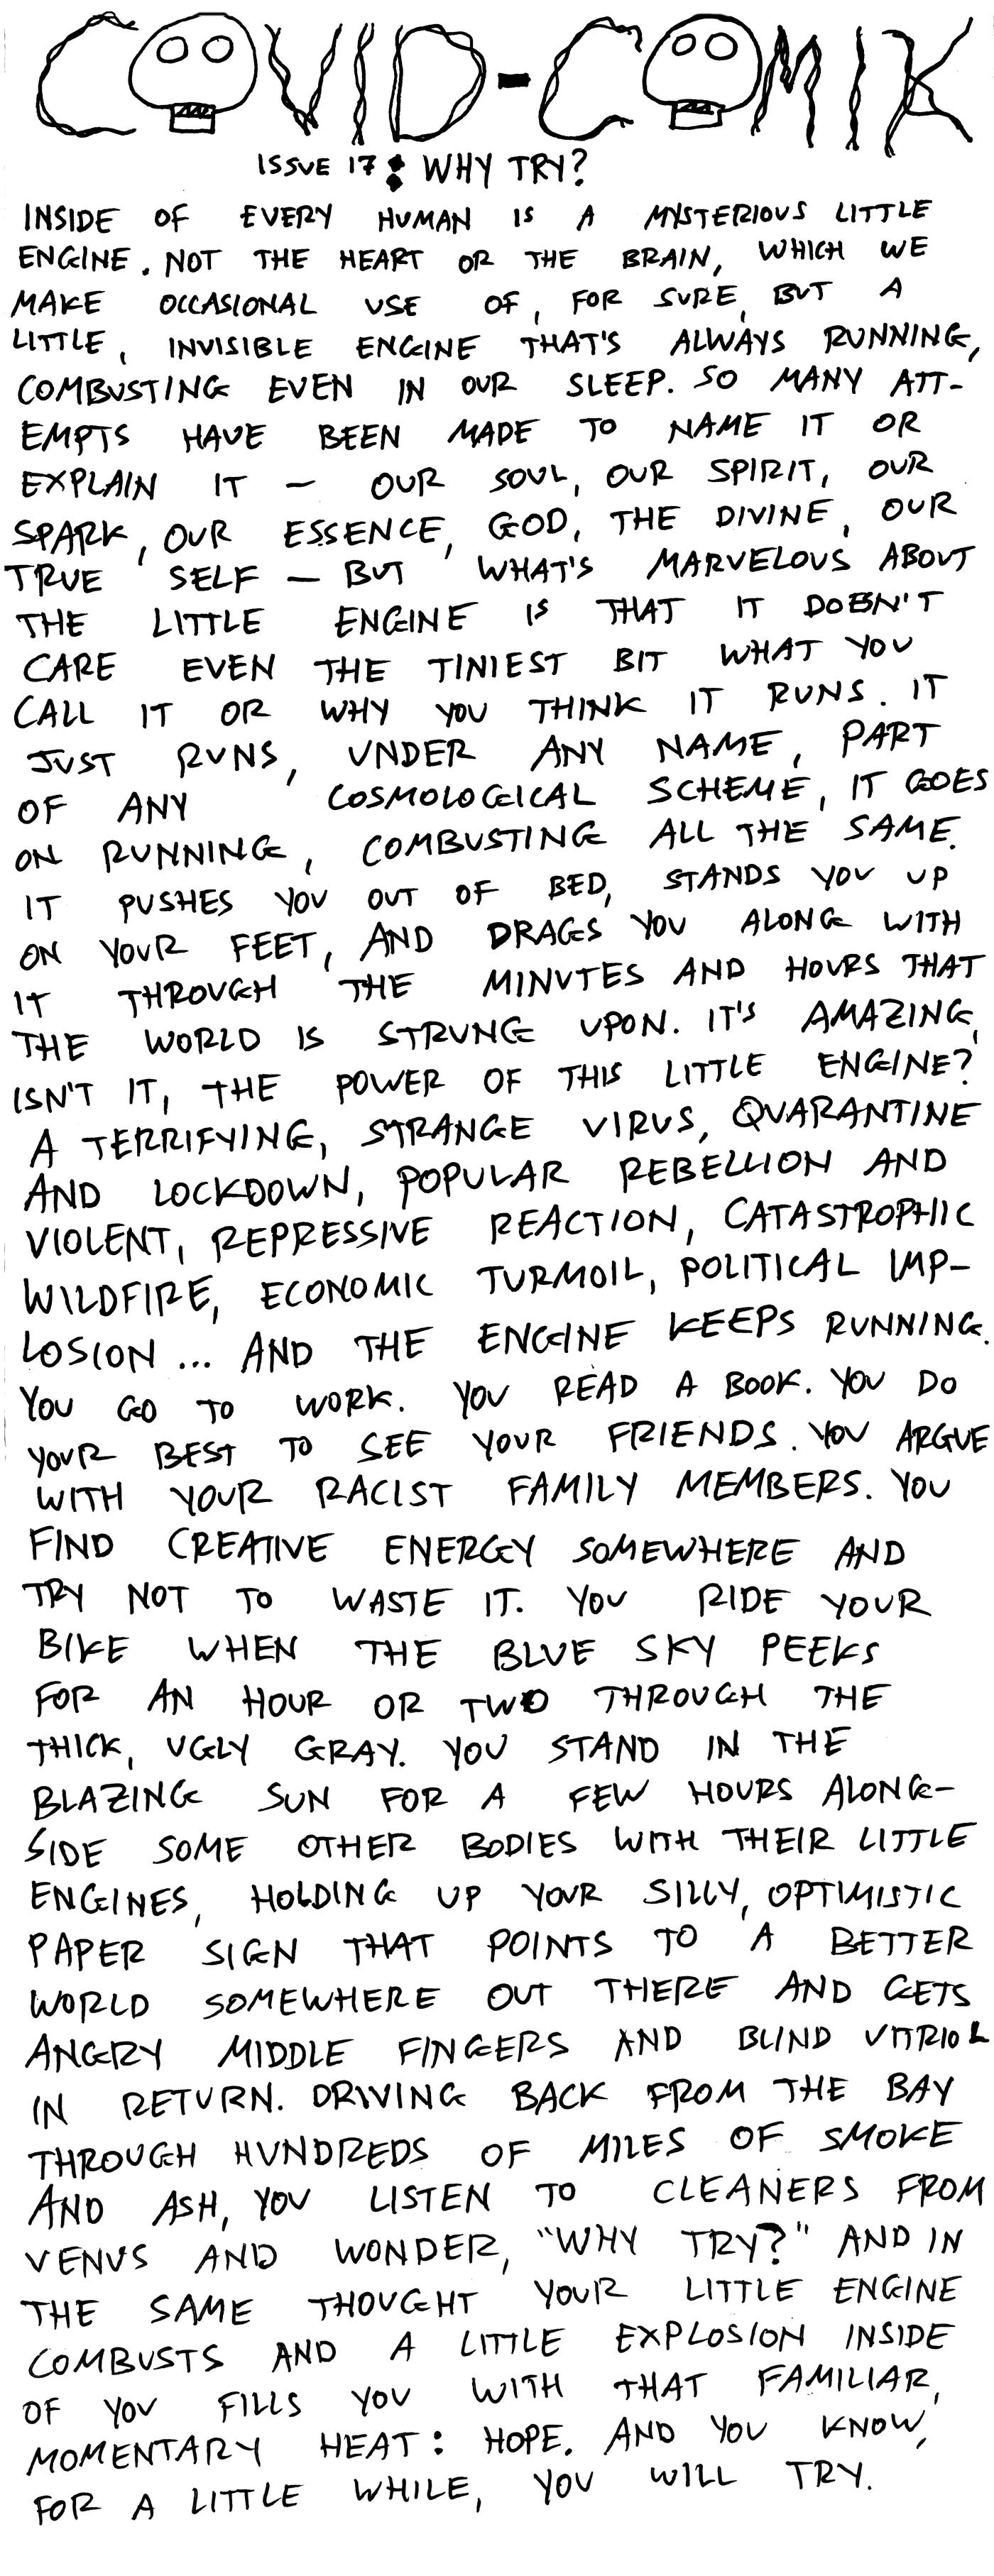 COVID-COMIK
ISSUE 17: WHY TRY?
INSIDE OF EVERY HUMAN IS A MYSTERIOUS LITTLE
ENGINE. NOT THE HEART OR THE BRAIN, WHICH WE
MAKE OCCASIONAL USE OF, FOR SURE, BUT A
LITTLE, INVISIBLE ENGINE THAT'S ALWAYS RUNNING,
COMBUSTING EVEN IN OUR SLEEP. SO MANY ATT-
EMPTS HAVE BEEN MADE TO NAME IT OR
EXPLAIN IT — OUR SOUL, OUR SPIRIT, OUR
SPARK, OUR ESSENCE, GOD, THE DIVINE, OUR
TRUE SELF — BUT WHAT'S MARVELOUS ABOUT
THE LITTLE ENGINE IS THAT IT DOESN'T
CARE EVEN THE TINIEST BIT WHAT YOU
CALL IT OR WHY YOU THINK IT RUNS. IT
JUST RUNS, UNDER ANY NAME, PART
OF ANY COSMOLOGICAL SCHEME, IT GOES
ON RUNNING, COMBUSTING ALL THE SAME.
IT PUSHES YOU OUT OF BED, STANDS YOU UP
ON YOUR FEET, AND DRAGS YOU ALONG WITH
IT THROUGH THE MINUTES AND HOURS THAT
THE WORLD IS STRUNG UPON. IT'S AMAZING,
ISN'T IT, THE POWER OF THIS LITTLE ENGINE?
A TERRIFYING, STRANGE VIRUS, QUARANTINE
AND LOCKDOWN, POPULAR REBELLION AND
VIOLENT, REPRESSIVE REACTION, CATASTROPHIC
WILDFIRE, ECONOMIC TURMOIL, POLITICAL IMP-
LOSION ... AND THE ENGINE KEEPS RUNNING.
YOU GO TO WORK. YOU READ A BOOK. YOU DO
YOUR BEST TO SEE YOUR FRIENDS. YOU ARGUE
WITH YOUR RACIST FAMILY MEMBERS. YOU
FIND CREATIVE ENERGY SOMEWHERE AND
TRY NOT TO WASTE IT. YOU RIDE YOUR
BIKE WHEN THE BLUE SKY PEEKS
FOR AN HOUR OR TWO THROUGH THE
THICK, UGLY GRAY. YOU STAND IN THE
BLAZING SUN FOR A FEW HOURS ALONG-
SIDE SOME OTHER BODIES WITH THEIR LITTLE
ENGINES, HOLDING UP YOUR SILLY, OPTIMISTIC
PAPER SIGN THAT POINTS TO A BETTER
WORLD SOMEWHERE OUT THERE AND GETS
ANGRY MIDDLE FINGERS AND BLIND VITRIOL
IN RETURN. DRIVING BACK FROM THE BAY
THROUGH HUNDREDS OF MILES OF SMOKE
AND ASH, YOU LISTEN TO CLEANERS FROM
VENUS AND WONDER, "WHY TRY?" AND IN
THE SAME THOUGHT YOUR LITTLE ENGINE
COMBUSTS AND A LITTLE EXPLOSION INSIDE
OF YOU FILLS YOU WITH THAT FAMILIAR,
MOMENTARY HEAT: HOPE. AND YOU KNOW,
FOR A LITTLE WHILE, YOU WILL TRY.